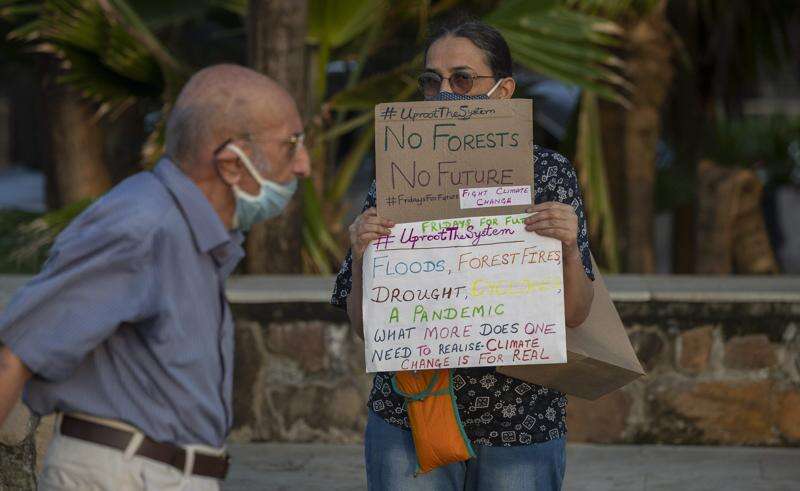 #UprootTheSystem
NO FORESTS
NO FUTURE
#FridaysForFuture
FIGHT CLIMATE
CHANGE
FRIDAYS FOR FUT
#UprootTheSystem
FLOODS, FOREST FIRES,
DROUGHT, CYCLONES,
A PANDEMIC
WHAT MORE DOES ONE
NEED TO REALISE-CLIMATE
CHANGE IS FOR REAL